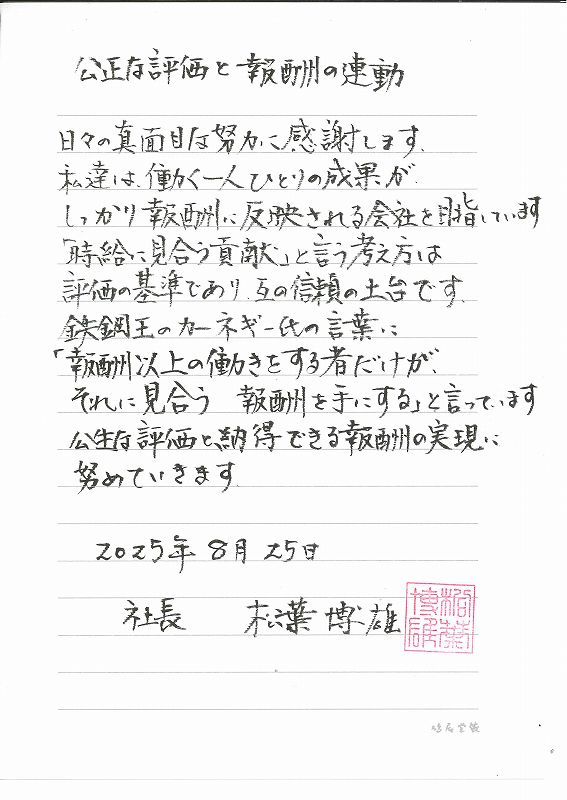 公正な評価と報酬の連動
日々の真面目な努力に感謝します。
私達は、働く一人ひとりの成果が、
しっかり報酬に反映される会社を目指しています
「時給に見合う貢献」と言う考え方は
評価の基準であり、互の信頼の土台です。
鉄鋼王のカーネギー氏の言葉に
「報酬以上の働きをする者だけが、
それに見合う 報酬を手にする」と言っています
公生な評価と、納得できる報酬の実現に
努めていきます。
2025年 8月 25日
社長 松葉 博雄
松葉博雄